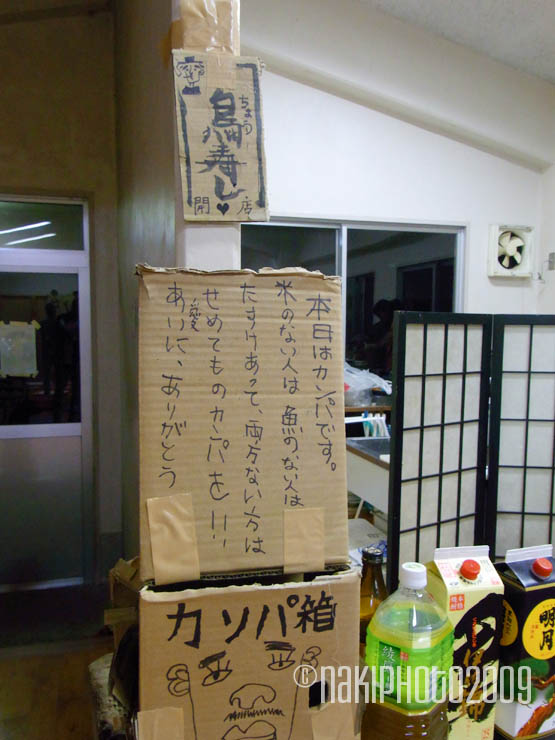 ちょうハ
寿し
開♥店
本日はカンパです。
米のない人は 魚の、ない人は
たすけあって、両方ない方は
せめてものカンパを!!!
愛
ありに、ありがとう
カンパ箱
綾鷹
明月
©nakiphoto2009